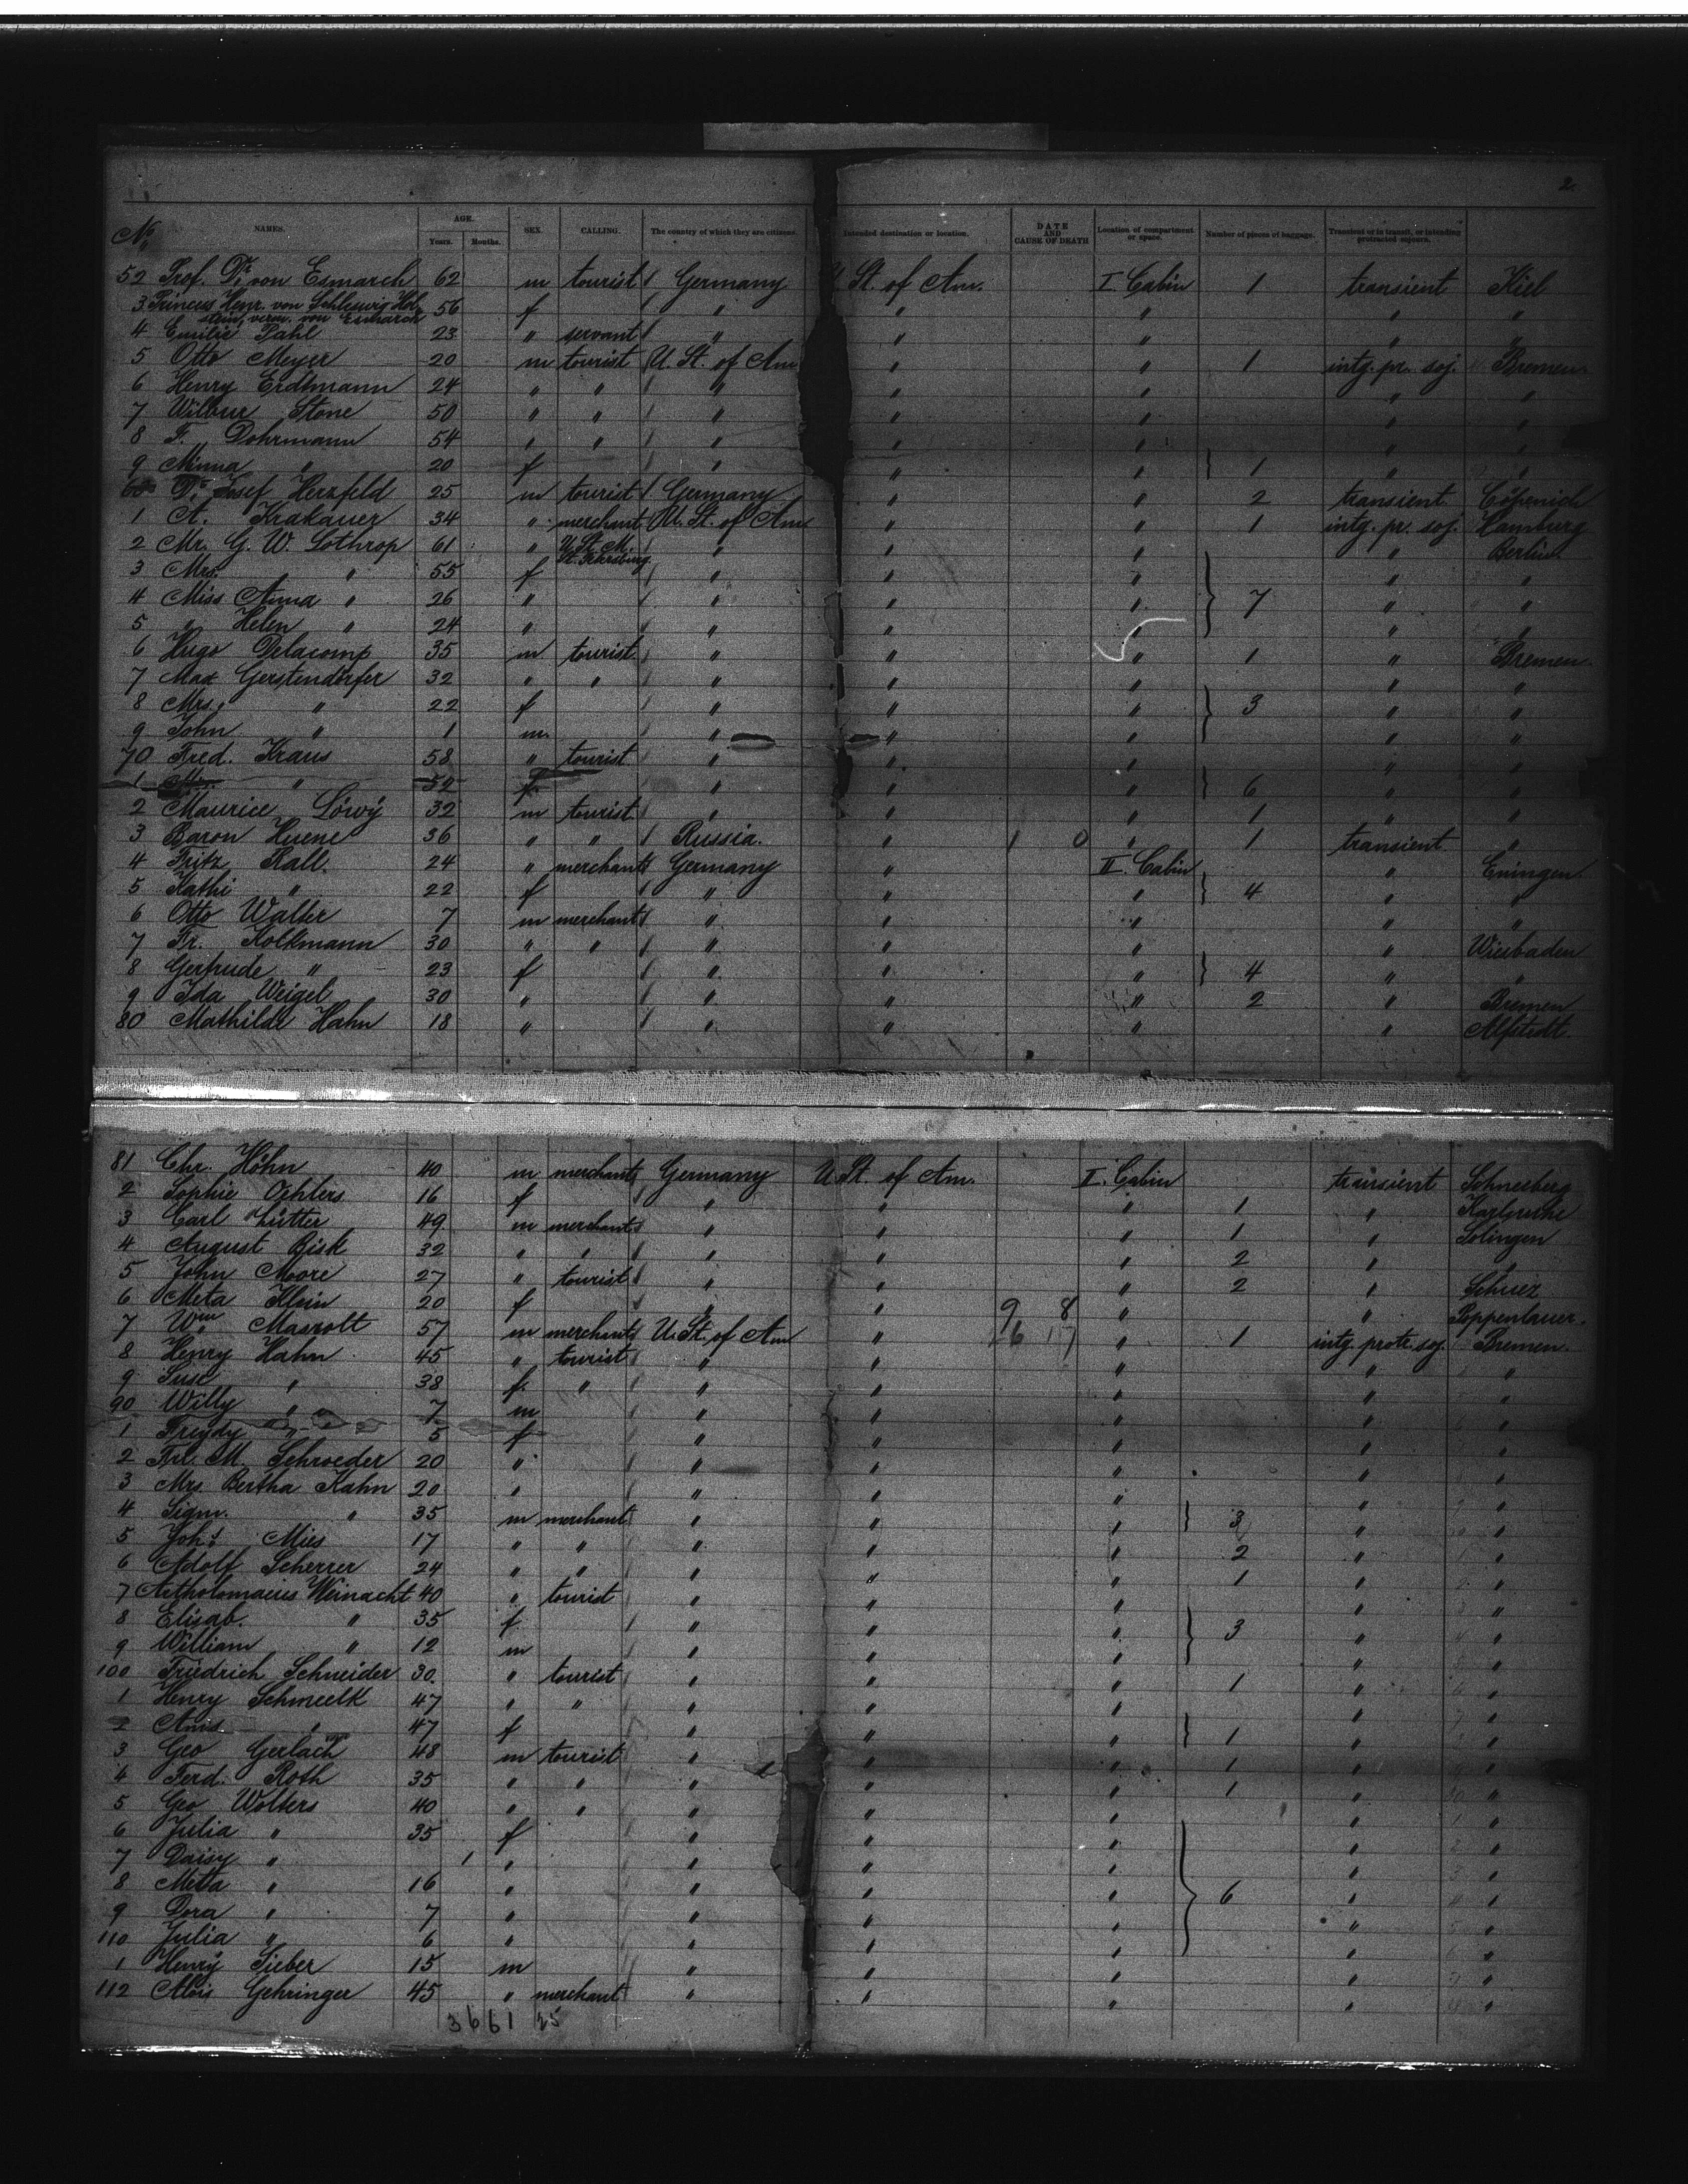 2.
No NAMES. AGE. Years. Months. SEX. CALLING. The country of which they are citizens. Intended destination or location. DATE AND CAUSE OF DEATH Location of compartment or space. Number of pieces of baggage. Transient or in transit, or intending protracted sojourn.
52 Prof. Dr. von Esmarch 62 m tourist Germany U St. of Am. I Cabin 1 transient Kiel
3 Princess Henr. von Schleswig Hol- 56 f " " " " "
stein, verm. von Esmarch
4 Emilie Pahl 23 " servant " " " " "
5 Otto Meyer 20 m tourist U. St. of Am " " 1 intg. pr. soj. Bremen
6 Henry Erdtmann 24 " " " " " " "
7 Wilbur Stone 50 " " " " " " "
8 F. Dohrmann 54 " " " " " " "
9 Minna " 20 f " " " } 1 " "
60 Dr. Josef Herzfeld 25 m tourist Germany " " 2 transient Cöpenick
1 A. Krakauer 34 " merchant U. St. of Am " " 1 intg. pr. soj. Hamburg
2 Mr. G. W. Lothrop 61 " U. St. M. St. Petersburg " " " " Berlin
3 Mrs. " 55 f " " " " "
4 Miss Anna " 26 " " " " } 7 " "
5 " Helen " 24 " " " " " "
6 Hugo Delacomp 35 m tourist " " " 1 " Bremen
7 Max Gerstendörfer 32 " " " " " " "
8 Mrs. " 22 f " " " } 3 " "
9 John " 1 m " " " " "
70 Fred. Kraus 58 " tourist " " " " "
1 " 52 f " " " } 6 " "
2 Maurice Löwy 32 m tourist " " " 1 " "
3 Baron Huene 36 " " Russia. " 1 0 " 1 transient "
4 Fritz Rall. 24 " merchant Germany " II. Cabin " Eningen
5 Kathi " 22 f " " " } 4 " "
6 Otto Walter 7 m merchant " " " " "
7 Fr. Kolkmann 30 " " " " " " Wiesbaden
8 Gertrude " 23 f " " " } 4 " "
9 Ida Weigel 30 " " " " 2 " Bremen
80 Mathilde Hahn 18 " " " " " Alfstedt
81 Chr. Höhn 40 m merchant Germany U St. of Am. II. Cabin transient Schneeberg
2 Sophie Oehlers 16 f " " " 1 " Karlsruhe
3 Carl Lütter 49 m merchant " " " 1 " Solingen
4 August Bisk 32 " " " " " 2 " "
5 John Moore 27 " tourist " " " 2 "
6 Meta Klein 20 f " " 9 8 " " Poppenlauer.
7 Wm Masrolt 57 m merchant U. St. of Am " " 1 intg. protr. soj. Bremen.
8 Henry Hahn 45 " tourist " " " " "
9 Suse " 38 f. " " " " " "
90 Willy " 7 m " " " " "
1 " 5 f " " " " "
2 Frl. M. Schroeder 20 " " " " " "
3 Mrs. Bertha Kahn 20 " " " " " "
4 Sigm. " 35 m merchant " " " } 3 " "
5 Joh. Mies 17 " " " " " 2 " "
6 Adolf Scherrer 24 " " " " " 1 " "
7 Weinacht 40 " tourist " " " " "
8 Elisab. " 35 f " " " } 3 " "
9 William " 12 m " " " " "
100 Friedrich Schneider 30 " tourist " " " 1 " "
1 Henry Schmeelk 47 " " " " " " "
2 " 47 f " " " } 1 " "
3 Geo Gerlach 48 m tourist " " " 1 " "
4 Ferd. Roth 35 " " " " " 1 " "
5 Geo Wolters 40 " " " " " " "
6 Julia " 35 f " " " " "
7 Daisy " 1 " " " " " "
8 Meta " 16 " " " " } 6 " "
9 Dora " 7 " " " " " "
110 Julia " 6 " " " " " "
1 Henry Sieber 15 m " " " " "
112 Alois Gehringer 45 " merchant " " " " "
3661 25